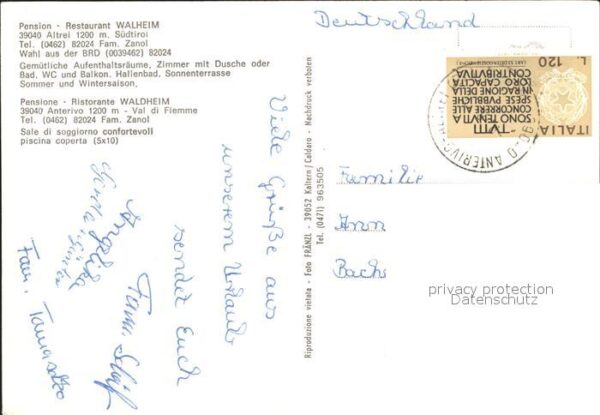 Pension - Restaurant WALHEIM
39040 Altrei 1200 m. Südtirol
Tel. (0462) 82024 Fam. Zanol
Wahl aus der BRD (0039462) 82024
Gemütliche Aufenthaltsräume, Zimmer mit Dusche oder
Bad, WC und Balkon. Hallenbad. Sonnenterrasse
Sommer und Wintersaison,
Pensione - Ristorante WALDHEIM
39040 Anterivo 1200 m - Val di Fiemme
Tel. (0462) 82024 Fam. Zanol
Sale di soggiorno confortevoli
piscina coperta (5x10)
Viele Grüße aus
unserem Urlaub
sendet Euch
Fam.
Angelika
Fam.
Riproduzione vietata - Foto FRÄNZL - 39052 Kaltern/Caldaro - Nachdruck verboten
Tel. (0471) 963505
Deutschland
L. 120
ITALIA
TUTTI
SONO TENUTI A
CONCORRERE ALLE
SPESE PUBBLICHE
IN RAGIONE DELLA
LORO CAPACITÀ
CONTRIBUTIVA
ANTERIVO
Familie
Ann
Bach
privacy protection
Datenschutz